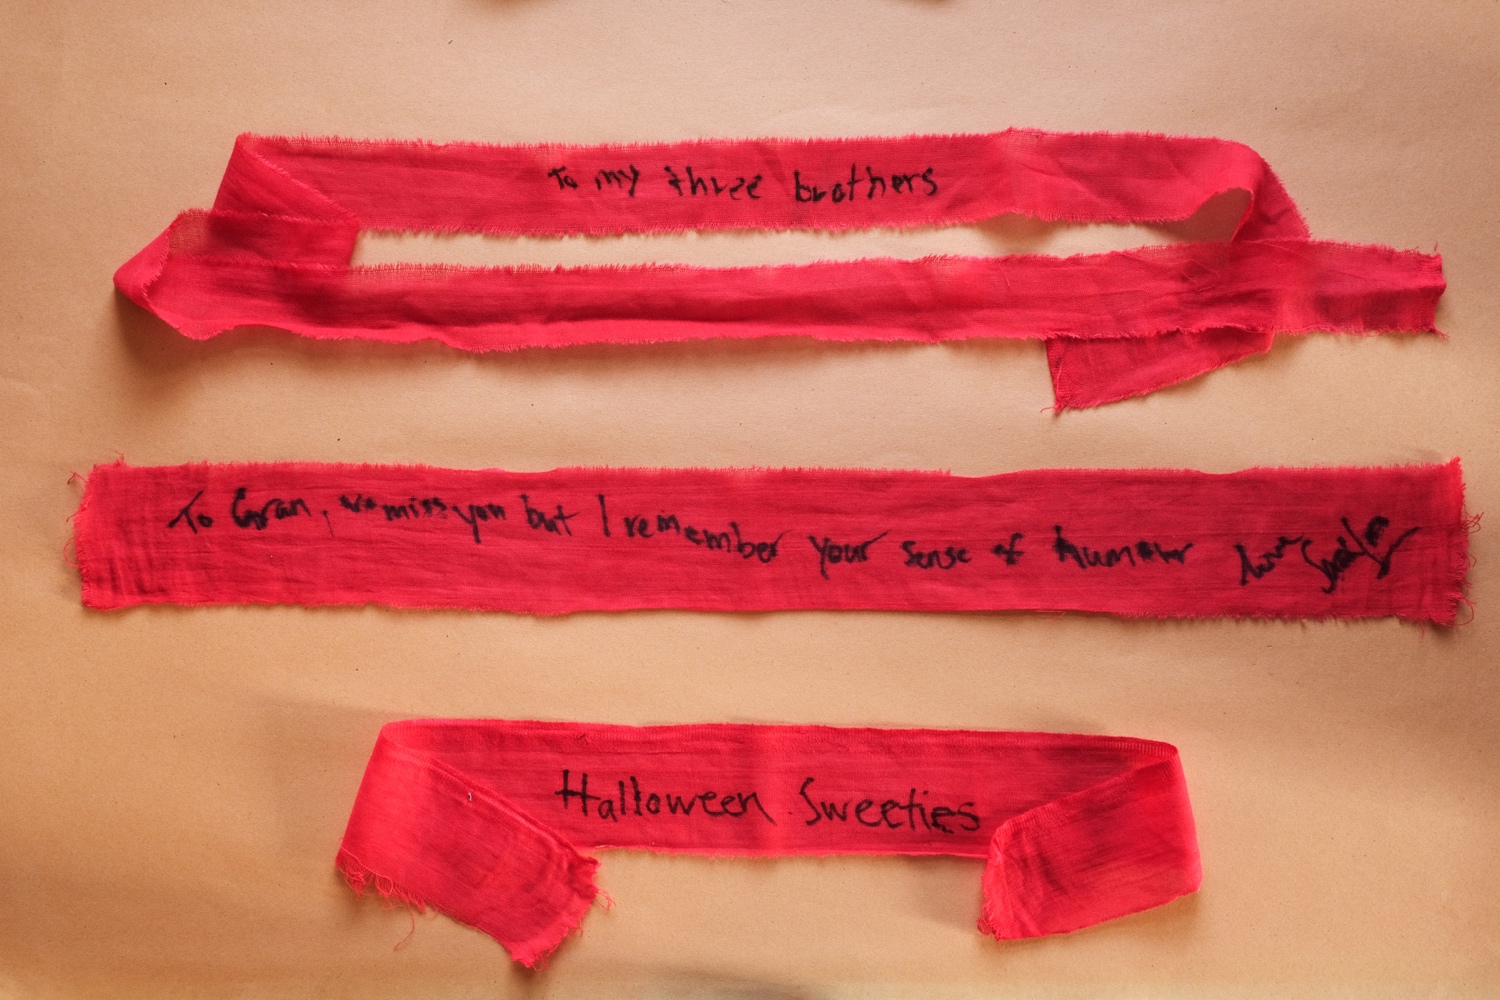 To my three brothers
To Gran, we miss you but I remember your sense of humour love
Halloween Sweeties